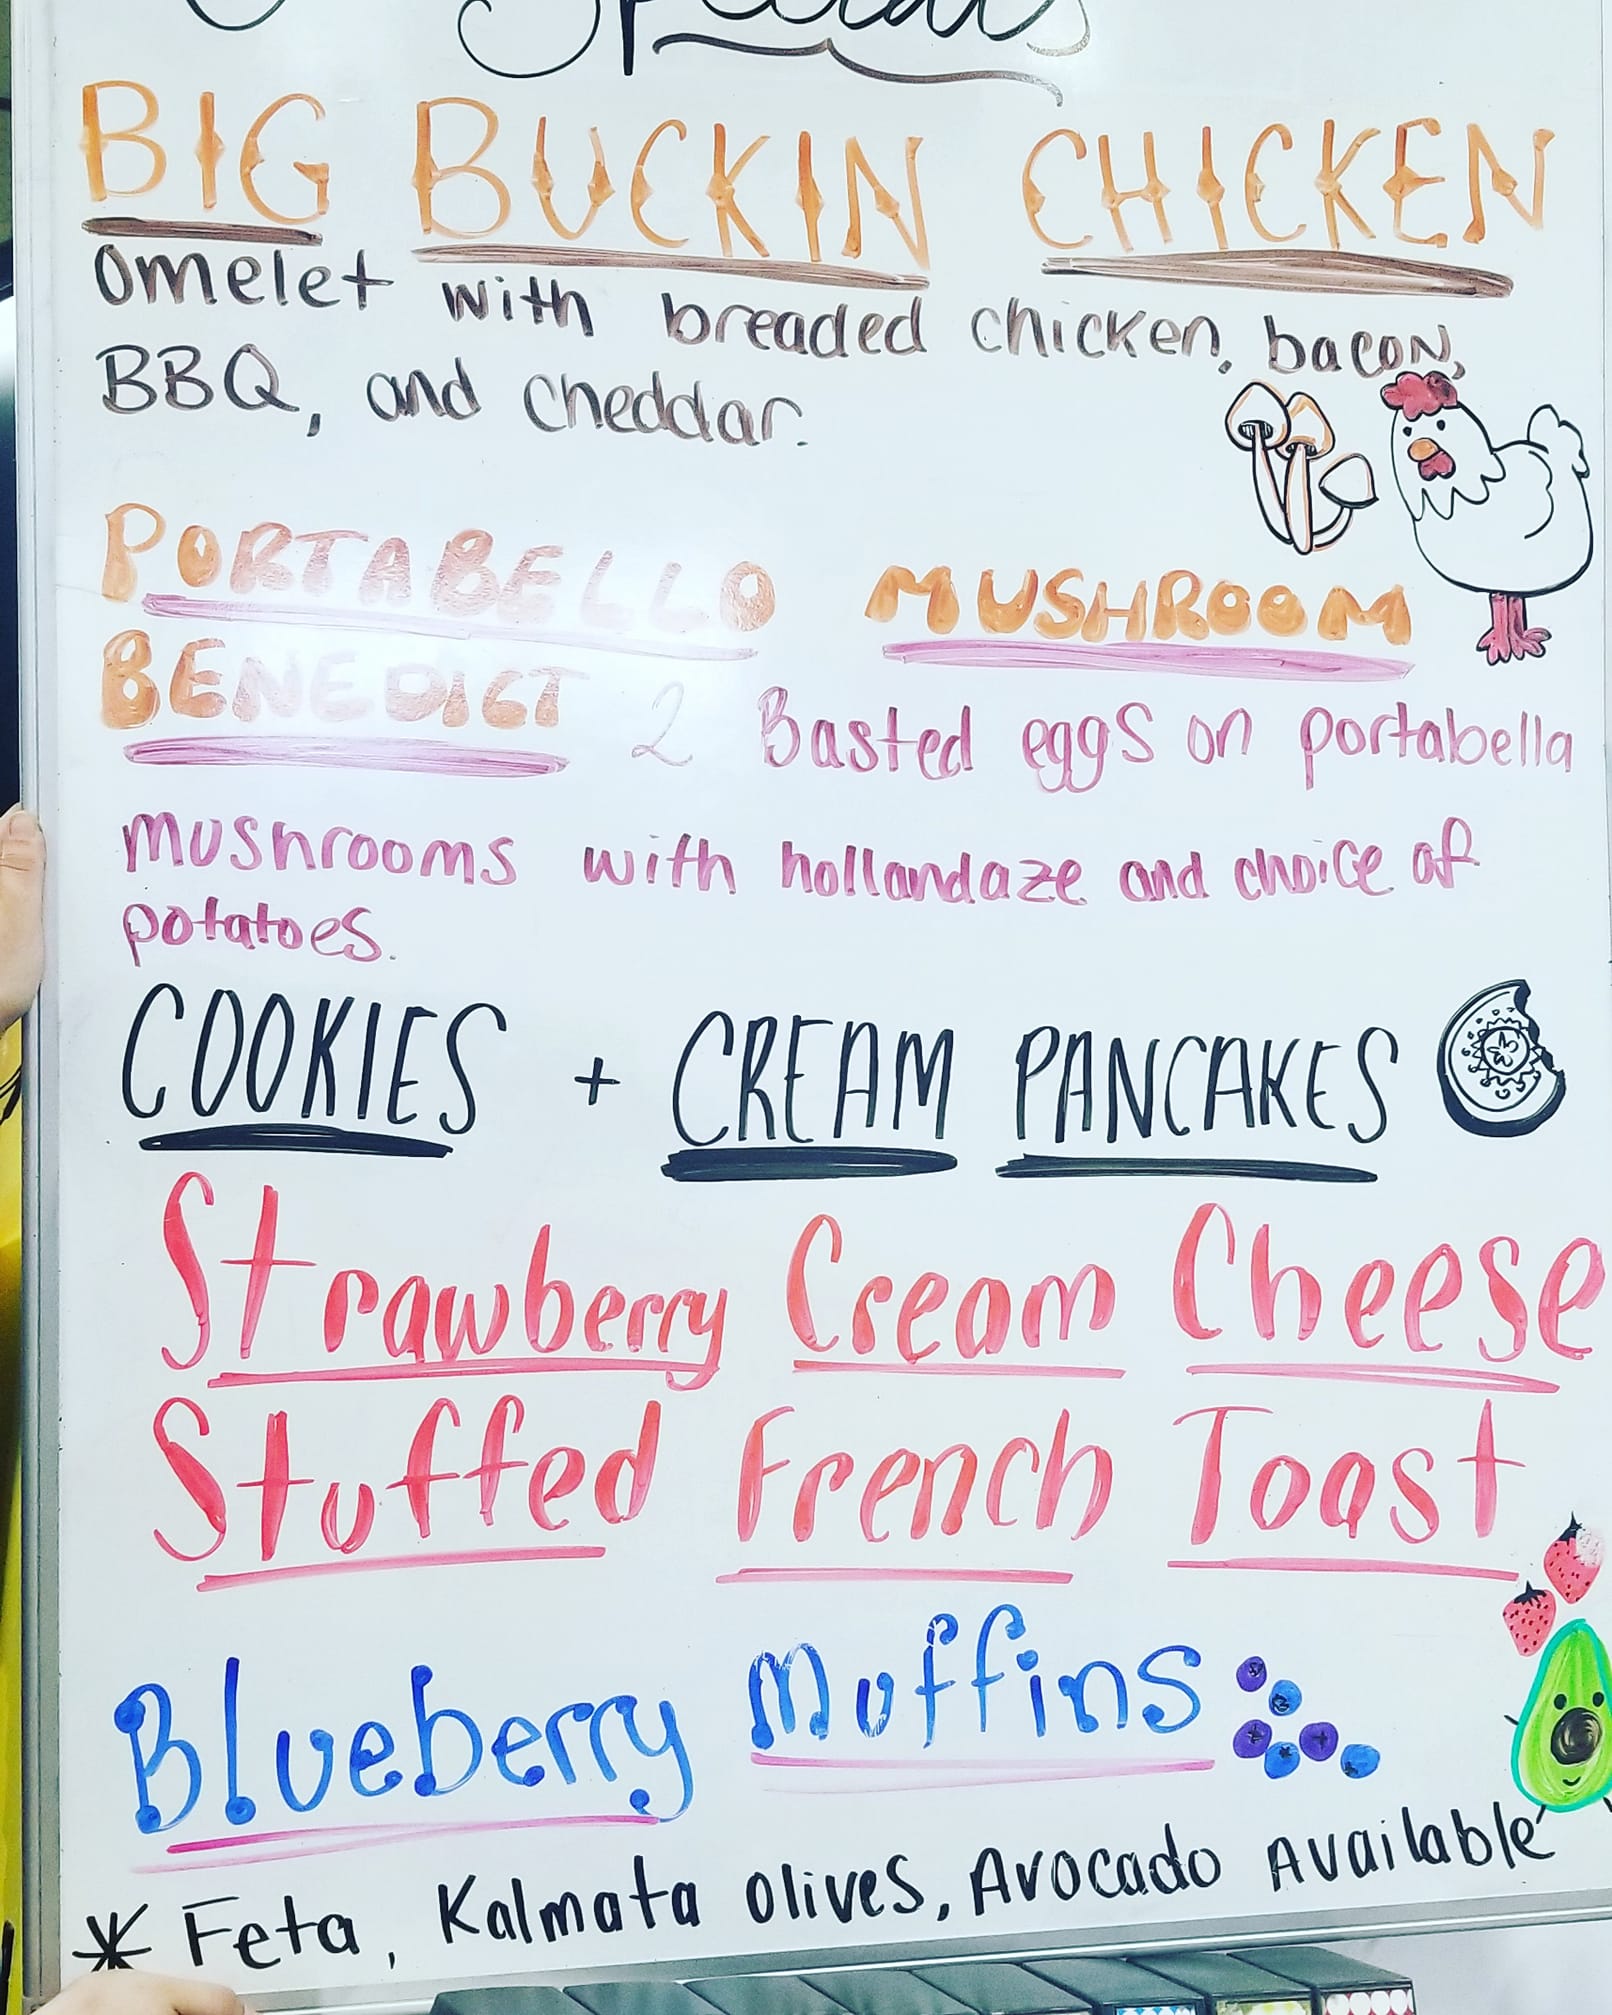 Specials
BIG BUCKIN CHICKEN
omelet with breaded chicken, bacon,
BBQ, and cheddar.
PORTABELLO MUSHROOM
BENEDICT 2 Basted eggs on portabella
mushrooms with hollandaze and choice of
potatoes.
COOKIES + CREAM PANCAKES
Strawberry Cream Cheese
Stuffed French Toast
Blueberry Muffins
* Feta, Kalmata olives, Avocado Available